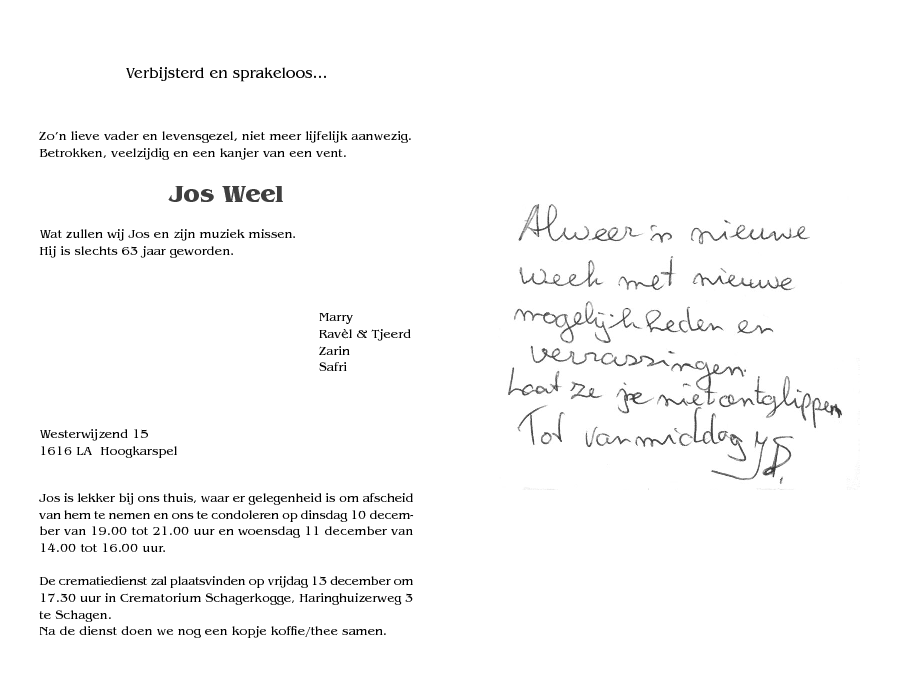 Verbijsterd en sprakeloos...
Zo'n lieve vader en levensgezel, niet meer lijfelijk aanwezig.
Betrokken, veelzijdig en een kanjer van een vent.
Jos Weel
Wat zullen wij Jos en zijn muziek missen.
Hij is slechts 63 jaar geworden.
Marry
Ravèl & Tjeerd
Zarin
Safri
Westerwijzend 15
1616 LA Hoogkarspel
Jos is lekker bij ons thuis, waar er gelegenheid is om afscheid
van hem te nemen en ons te condoleren op dinsdag 10 decem-
ber van 19.00 tot 21.00 uur en woensdag 11 december van
14.00 tot 16.00 uur.
De crematiedienst zal plaatsvinden op vrijdag 13 december om
17.30 uur in Crematorium Schagerkogge, Haringhuizerweg 3
te Schagen.
Na de dienst doen we nog een kopje koffie/thee samen.
Alweer 'n nieuwe
week met nieuwe
mogelijkheden en
verrassingen.
Laat ze je niet ontglippen
Tot vanmiddag